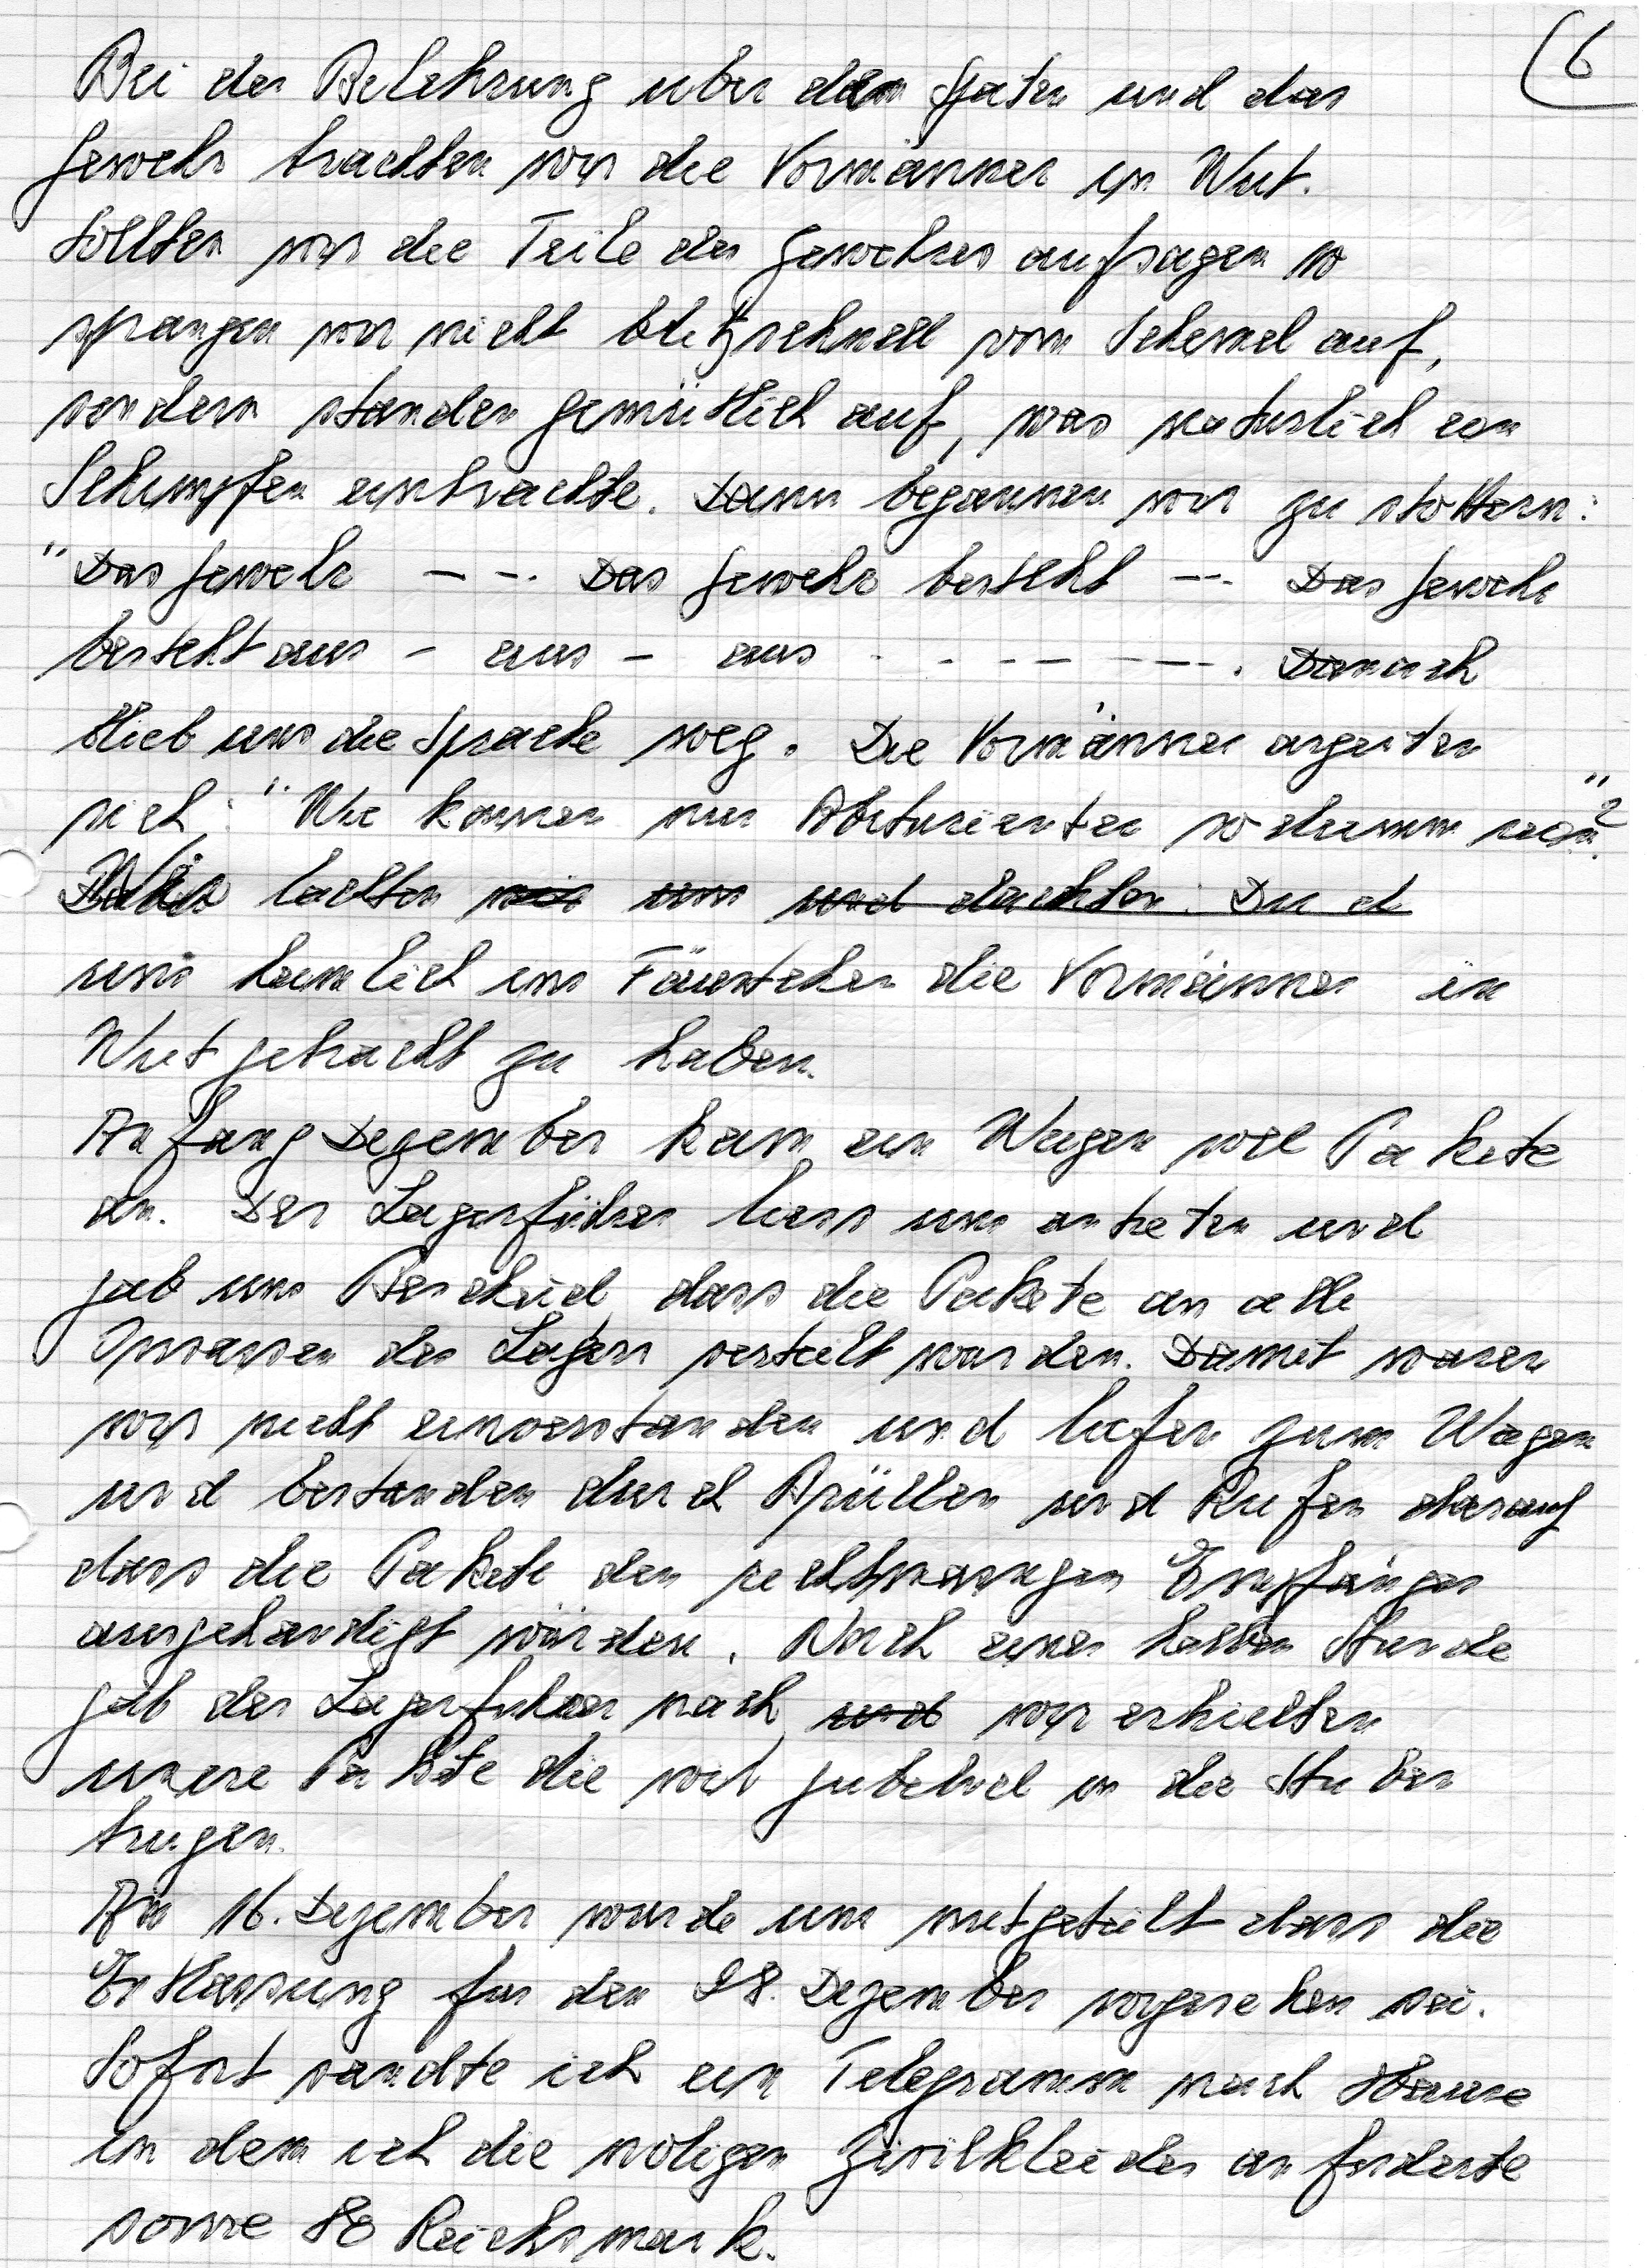 6
Bei der Belehrung uber den Spaten und das
Gewehr brachten wir die Vormänner in Wut.
Sollten wir die Teile des Gewehres aufsagen so
sprangen wir nicht blitzschnell vom Schemel auf,
sondern standen gemütlich auf, was naturlich ein
Schimpfen einbrachte. Dann begannen wir zu stottern:
"Das Gewehr --- Das Gewehr besteht --- Das Gewehr
besteht aus - aus - aus - - - - - - - . Danach
blieb uns die Sprache weg. Die Vormänner argerten
sich: "Wie konnen nur Abiturienten so dumm sein?"
Wir lachten wir uns und dachten: Du d
uns heimlich ins Fäustchen die Vormänner in
Wut gebracht zu haben.
Anfang Dezember kam ein Wagen voll Pakete
an. Der Lagerführer liess uns antreten und
gab uns Bescheid, dass die Pakete an alle
Insassen des Lagers verteilt wurden. Damit waren
wir nicht einverstanden und liefen zum Wagen
und bestanden durch Brüllen und Rufen darauf
dass die Pakete den rechtmassigen Empfänger
ausgehandigt würden. Nach einer halben Stunde
gab der Lagerfuhrer nach, und wir erhielten
unsere Pakete die wir jubelnd in die Stuben
trugen.
Am 16. Dezember wurde uns mitgeteilt dass die
Entlassung fur den 28. Dezember vorgesehen sei.
Sofort sandte ich ein Telegramm nach Hause
in dem ich die notigen Zivilkleider anforderte
sowie 80 Reichsmark.